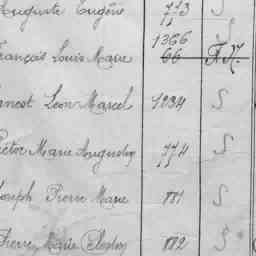 Auguste Eugène 773 S
1366 S
François Louis Marie 66 F.N.
Ernest Léon Marcel 1234 S
Victor Marie Augustin 774 S
Joseph Pierre Marie 881 S
Pierre Marie 882 S